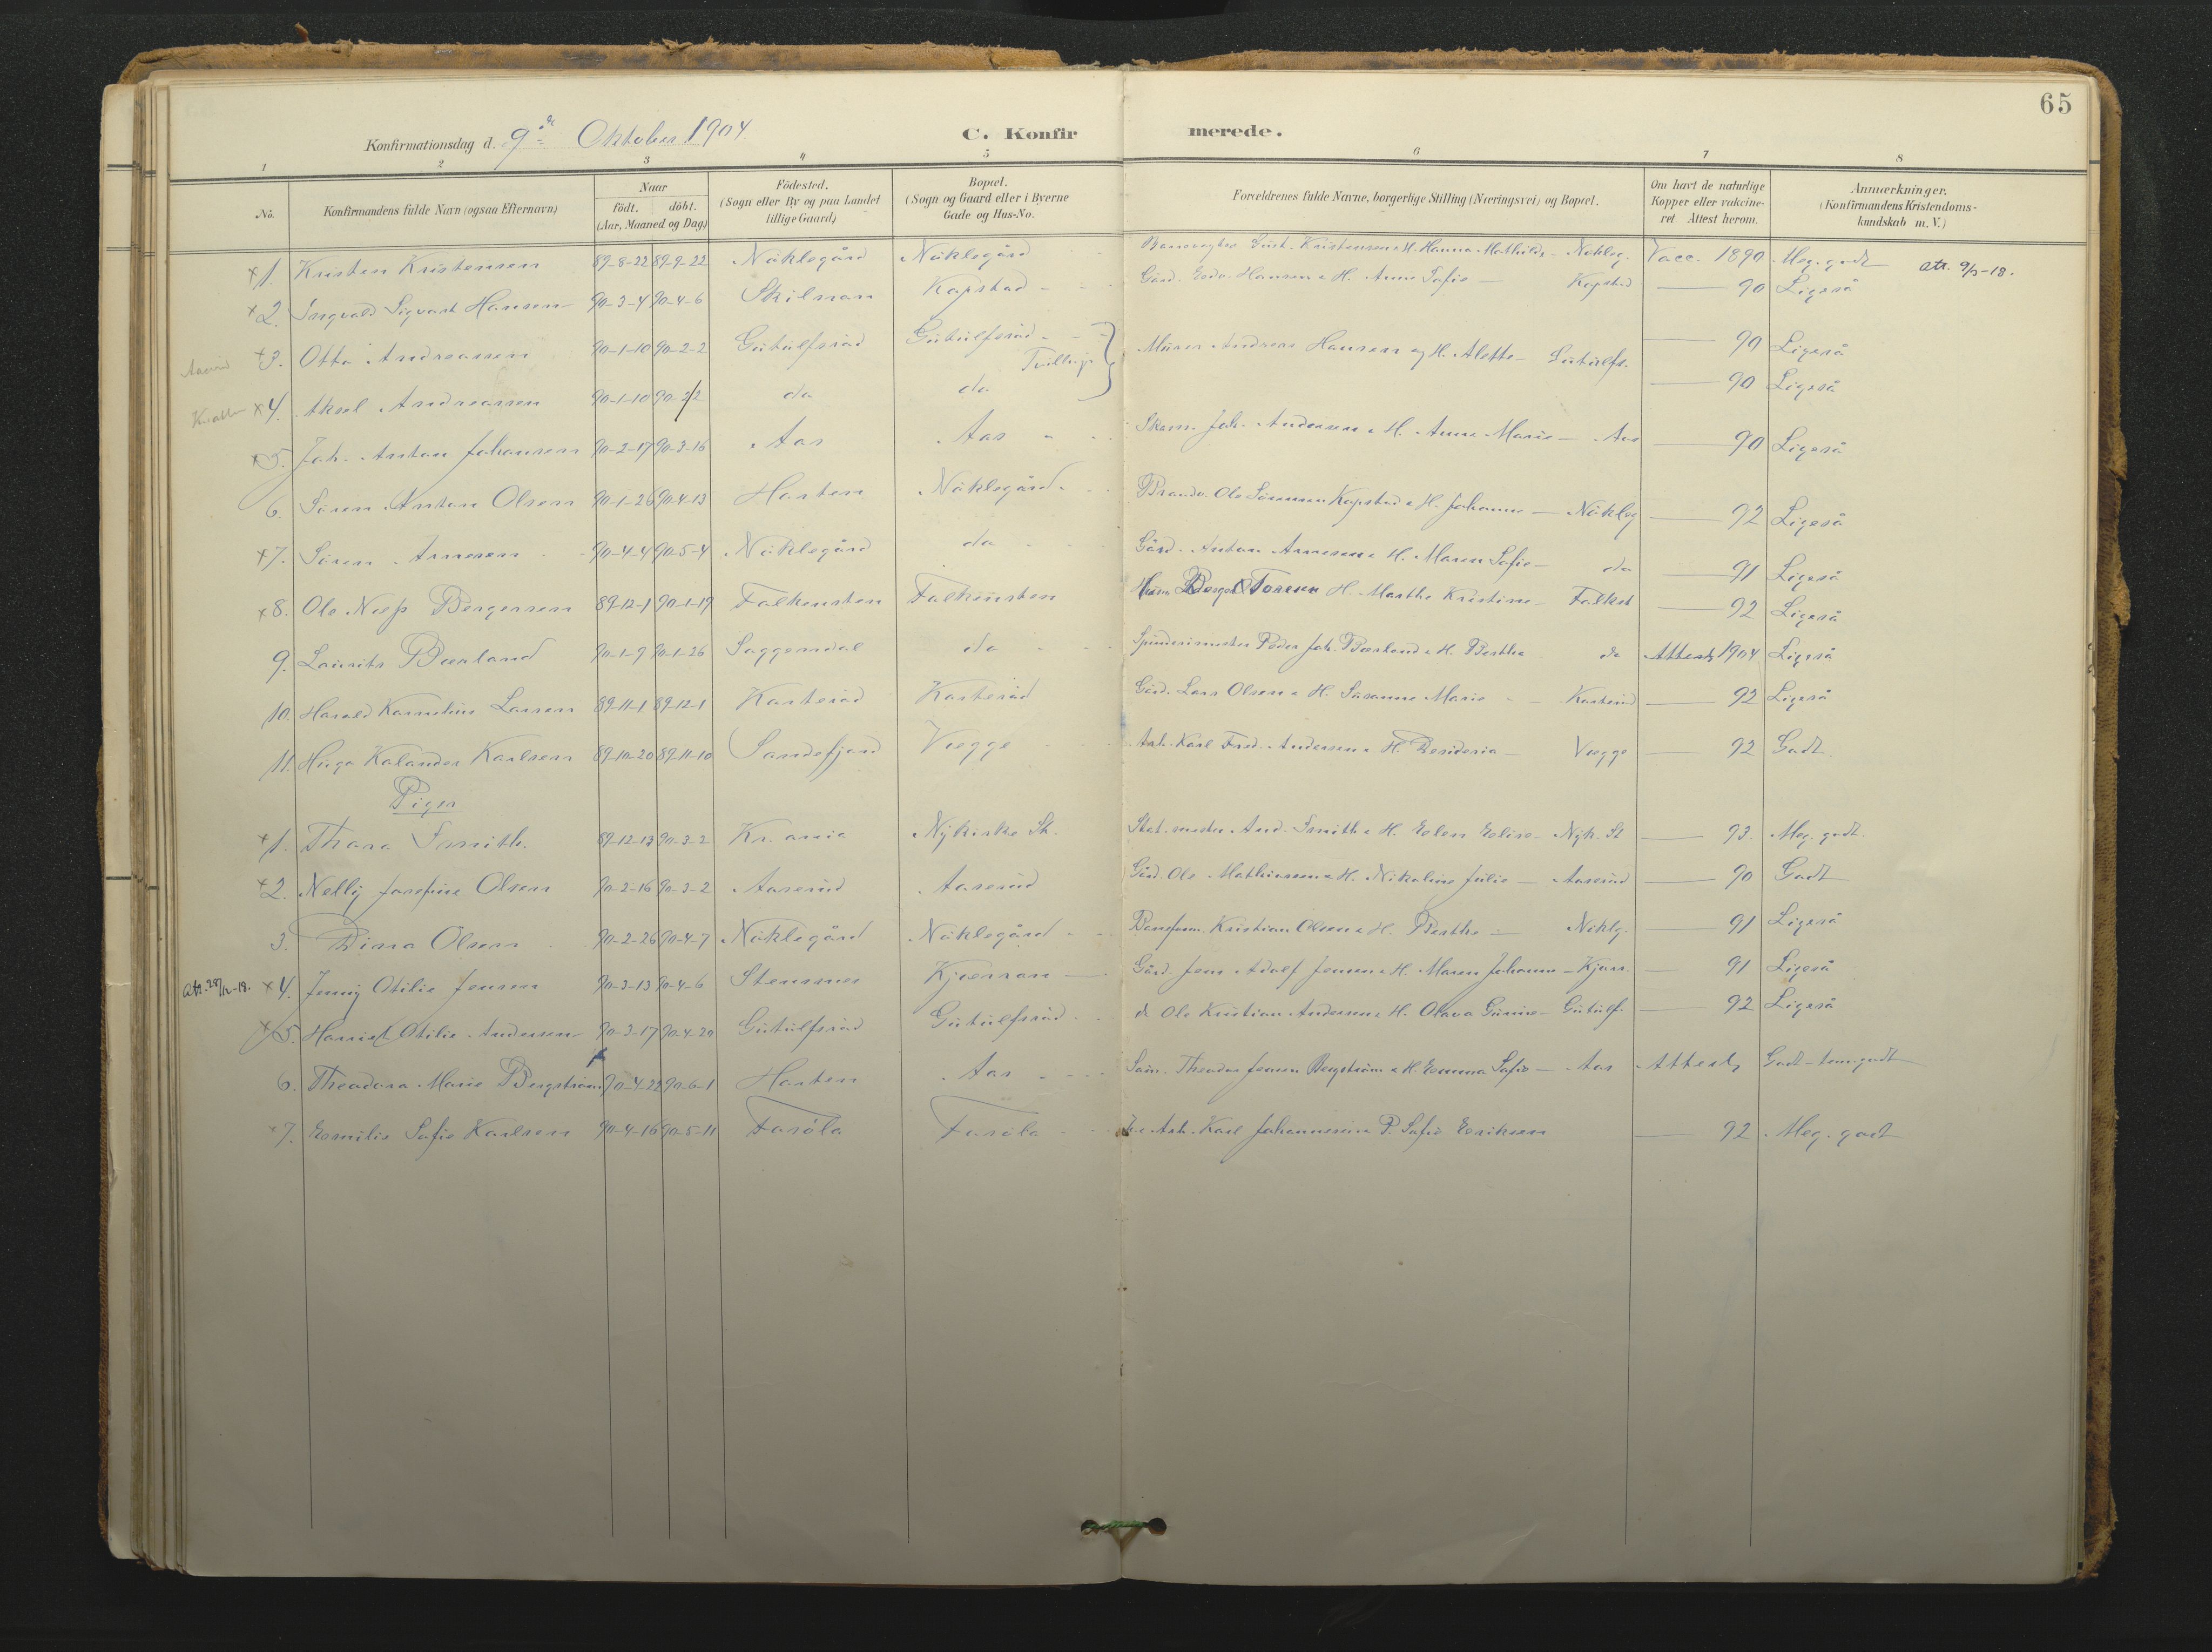 65
Konfirmationsdag d. 9de Oktober 1904
C. Konfirmerede.
1 2 3 4 5 6 7 8
No. Konfirmandens fulde Navn (ogsaa Efternavn) Naar födt. döbt. (Aar, Maaned og Dag.) Födested. (Sogn eller By og paa Landet tillige Gaard) Bopæl. (Sogn og Gaard eller i Byerne Gade og Hus-No. Forældrenes fulde Navne, borgerlige Stilling (Næringsvei) og Bopæl. Om havt de naturlige Kopper eller vakcineret. Attest herom. Anmærkninger. (Konfirmandens Kristendomskundskab m. V.)
x 1. Kristen Kristensen 89-8-22 89-9-22 Nöklegård Nöklegård Banevogter Gust. Kristensen & H. Hanna Mathilde - Nökleg. Vacc. 1890 Meg. godt att. 9/3-18.
x 2. Ingvald Sigvart Hansen 90-3-4 90-4-6 Skilnan Kapstad Gård. Edv. Hansen & H. Anne Sofie - Kapstad 90 Ligeså
x 3. Otto Andreassen 90-1-10 90-2-2 Gutulfsröd Gutulfsröd Tvillinger Murer Andreas Hansen og H. Alette - Gutulfs. 90 Ligeså
x 4. Aksel Andreassen 90-1-10 90-2/2 do do 90 Ligeså
x 5. Joh. Anton Johansen 90-2-17 90-3-16 Aas Aas Skom. Joh. Andersen & H. Anne Marie - Aas 90 Ligeså
6. Sören Anton Olsen 90-1-26 90-4-13 Horten Nöklegård Brandv. Ole Sörensen Kapstad & H. Johanne - Nökleg 92 Ligeså
x 7. Sören Arnesen 90-4-4 90-5-4 Nöklegård do Gård. Anton Arnesen & H. Maren Sofie - do 91 Ligeså
x 8. Ole Bergersen 89-12-1 90-1-19 Falkensten Falkensten H. Marthe Kristine - Falkst 92 Ligeså
9. Laurits Bærland 90-1-9 90-1-26 Saggendal do Spinderimester Peder Joh. Bærland & H. Berthe do Attest 1904 Ligeså
10. Harald Kornelius Larsen 89-11-1 89-12-1 Karteröd Karteröd Gård. Lars Olsen & H. Susanne Marie - Karteröd 92 Ligeså
11. Hugo Kalander Karlsen 89-10-20 89-11-10 Sandefjord Vægge Arb. Karl Fred. Andersen & H. Desideria - Vægge 92 Godt
Piger
x 1. Thora Smith. 89-12-13 90-3-2 Kr.ania Nykirke St. Stat.mester And. Smith & H. Elen Elise - Nyk. St 93. Meg. godt.
x 2. Nelly Josefine Olsen 90-2-16 90-3-2 Aaseröd Aaseröd Gård. Ole Mathiassen & H. Nikoline Julie - Aaseröd 90 Godt
3. Dina Olsen 90-2-26 90-4-7 Nöklegård Nöklegård Kristian Olsen & H. Berthe - Nöklg. 91 Ligeså
att. 28/12-18. x 4. Jenny Otilie Jensen 90-3-13 90-4-6 Stensnes Kjærran Gård. Jens Adolf Jensen & H. Maren Johanne - Kjærr. 91 Ligeså
x 5. Harriet Otilie Andersen 90-3-17 90-4-20 Gutulfsröd Gutulfsröd do Ole Kristian Andersen & H. Olava Gurine - Gutulf. 92 Ligeså
6. Theodora Marie Bergström 90-4-22 90-6-1 Horten Aas Söm. Theodor Jensen Bergström & H. Emma Sofie - Aas Attest Godt - tem. godt
x 7. Emilie Sofie Karlsen 90-4-16 90-5-11 Tasöla Tasöla Arb. Karl Johannesen & P. Sofie Eriksen 92 Meg. godt